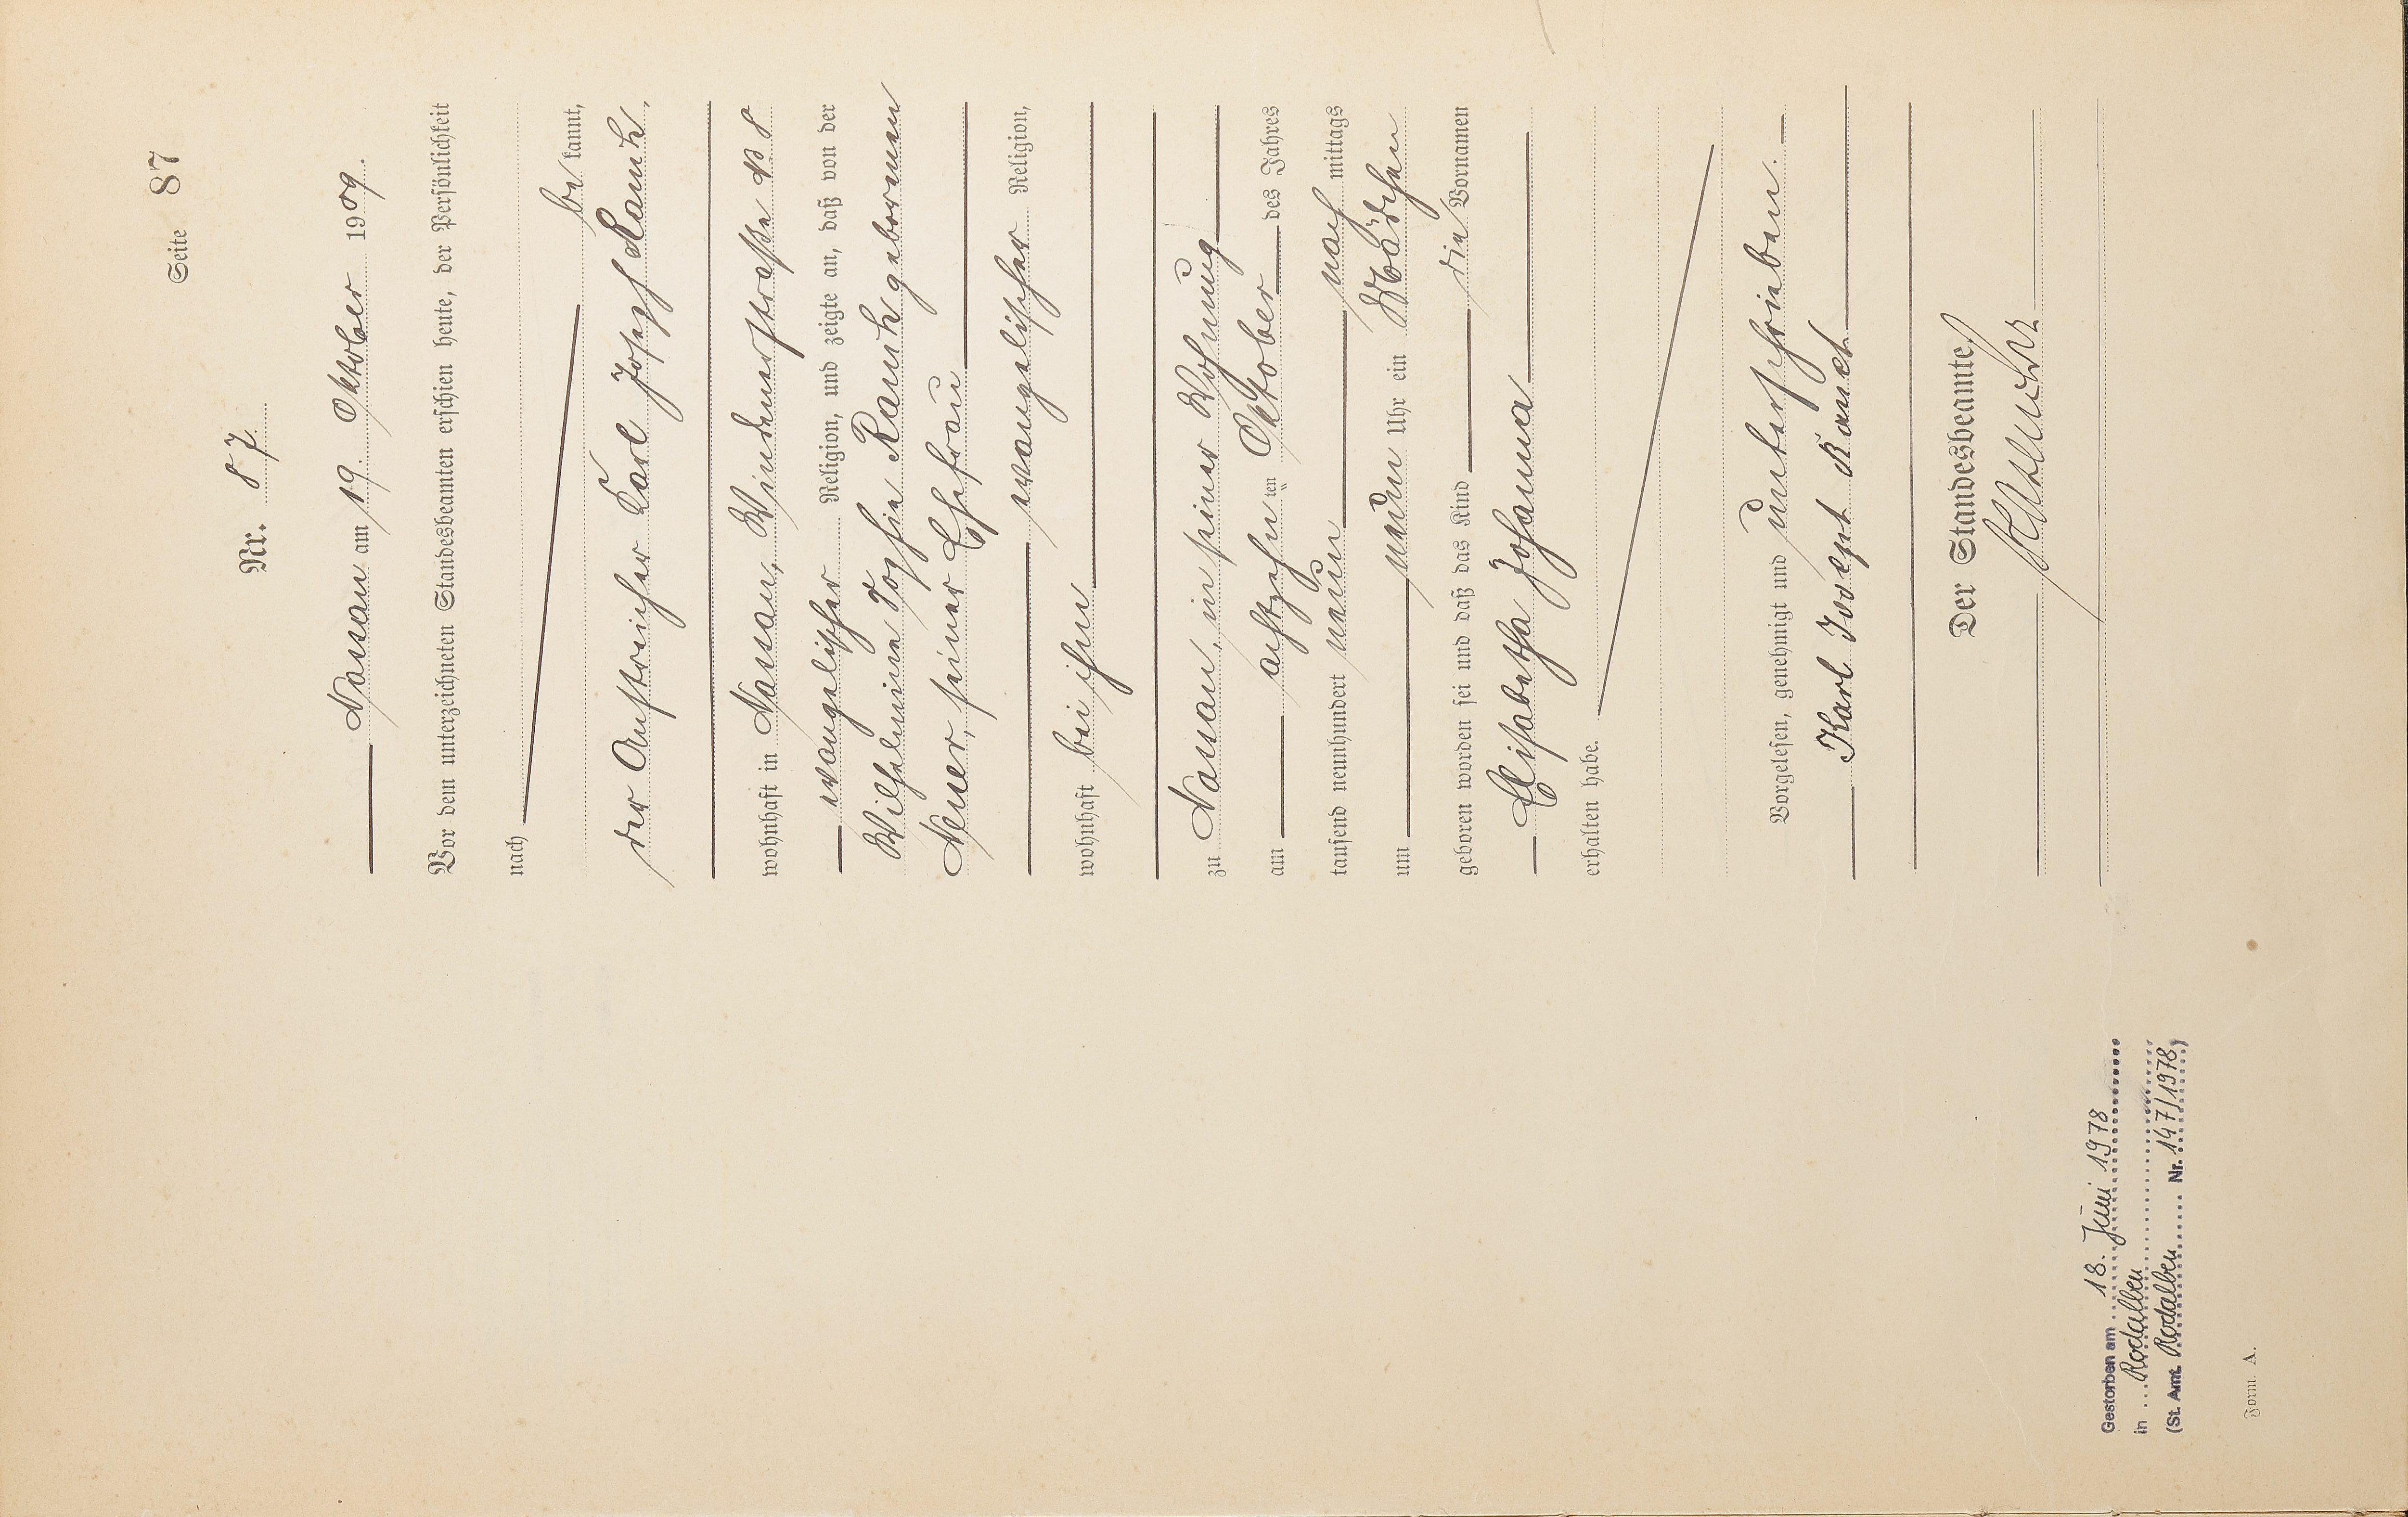 Seite 87
Nr. 87.
Nassau am 19. Oktober 1909.
Vor dem unterzeichneten Standesbeamten erschien heute, der Persönlichkeit
nach
be kannt,
der Anstreicher Karl Joseph Rauch,
wohnhaft in Nassau, Windenerstraße № 8
evangelischer Religion, und zeigte an, daß von der
Wilhelmine Sophie Rauch geborenen
seiner Ehefrau
evangelischer Religion,
wohnhaft bei ihm
zu Nassau, in seiner Wohnung
am achtzehn ten Oktober des Jahres
tausend neunhundert neun nach mittags
um neun Uhr ein Mädchen
geboren worden sei und daß das Kind die Vornamen
Elisabetha Johanna
erhalten habe.
Vorgelesen, genehmigt und unterschrieben.
Karl Joseph Rauch
Der Standesbeamte.
Gestorben am 18. Juni 1978
in Rodalben
(St. Amt Rodalben Nr. 147/1978)
Form. A.